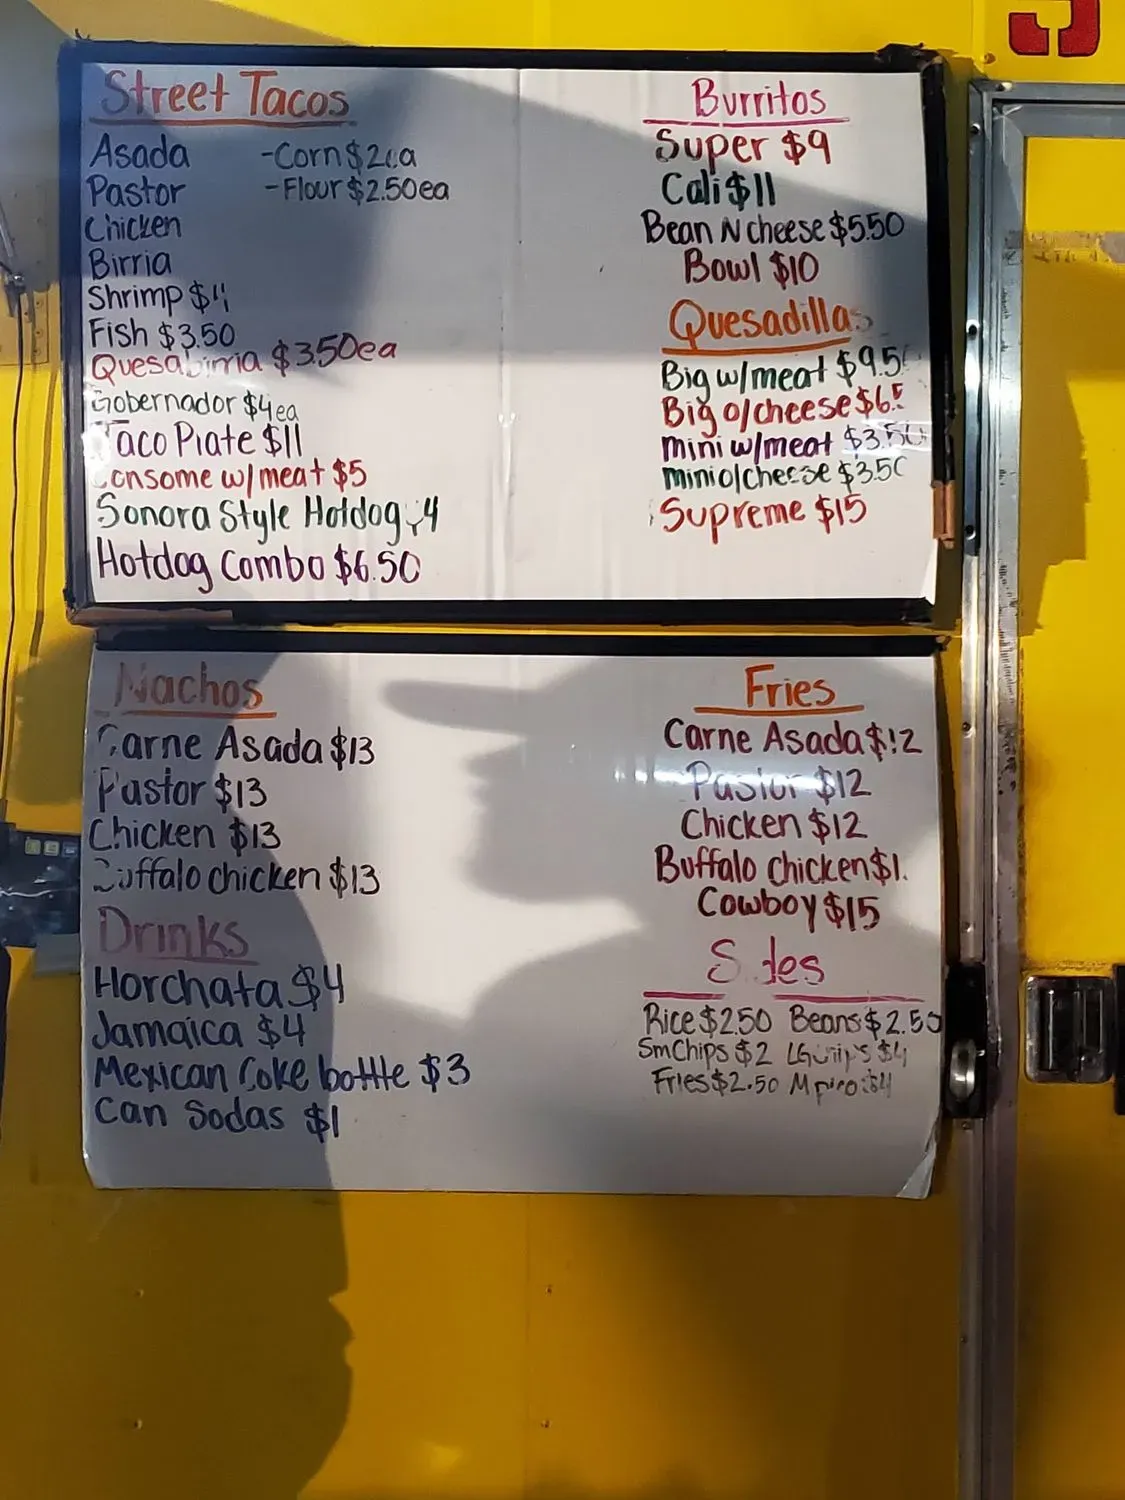 Street Tacos
Asada -Corn $2ea
Pastor -Flour $2.50ea
Chicken
Birria
Shrimp $4
Fish $3.50
Quesabirria $3.50ea
Gobernador $4ea
Taco Plate $11
Consome w/meat $5
Sonora Style Hotdog 4
Hotdog Combo $6.50
Burritos
Super $9
Cali $11
Bean N cheese $5.50
Bowl $10
Quesadillas
Big w/meat $9.5
Big o/cheese $6.5
mini w/meat $3.50
mini o/cheese $3.50
Supreme $15
Nachos
Carne Asada $13
Pastor $13
Chicken $13
Buffalo chicken $13
Drinks
Horchata $4
Jamaica $4
Mexican Coke bottle $3
Can Sodas $1
Fries
Carne Asada $12
Pastor $12
Chicken $12
Buffalo chicken
Cowboy $15
Sides
Rice $2.50 Beans $2.50
Sm Chips $2 LG chips $4
Fries $2.50 $4